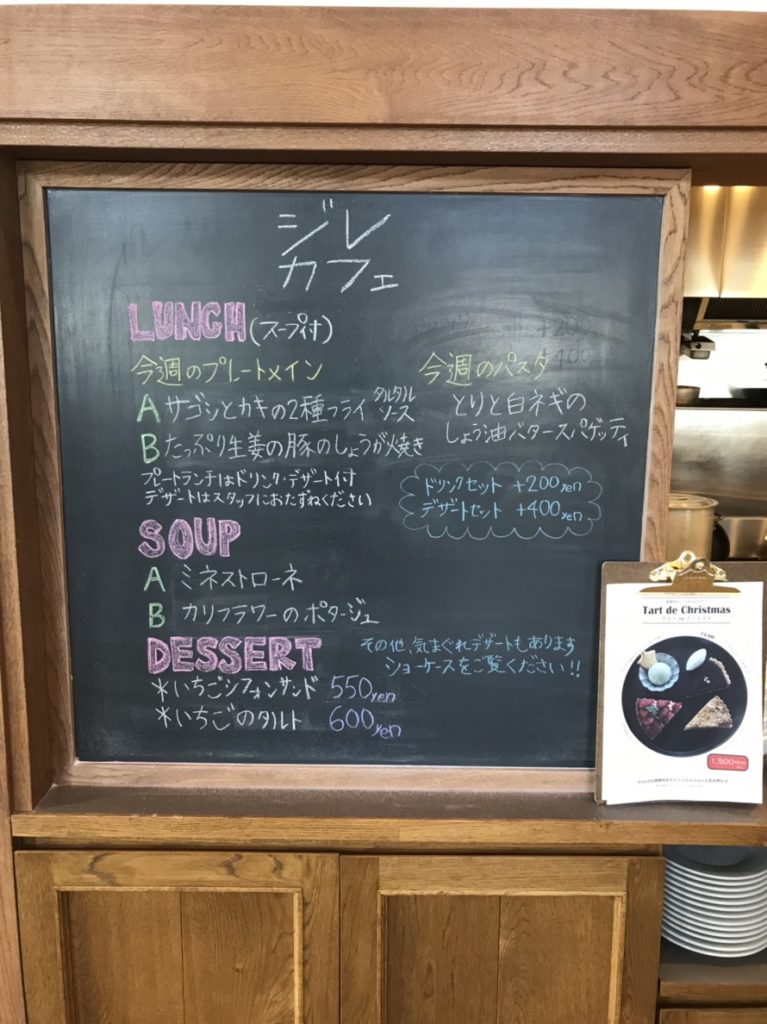 ジレ
カフェ
LUNCH(スープ付)
今週のプレートメイン
A サゴシとカキの2種フライ タルタルソース
B たっぷり生姜の豚のしょうが焼き
プレートランチはドリンク・デザート付
デザートはスタッフにおたずねください
今週のパスタ
とりと白ネギの
しょう油バタースパゲッティ
ドリンクセット +200yen
デザートセット +400yen
SOUP
A ミネストローネ
B カリフラワーのポタージュ
DESSERT
*いちごシフォンサンド 550yen
*いちごのタルト 600yen
その他、気まぐれデザートもあります
ショーケースをご覧ください!!
Tart de Christmas
タルト de クリスマス
1,500YEN